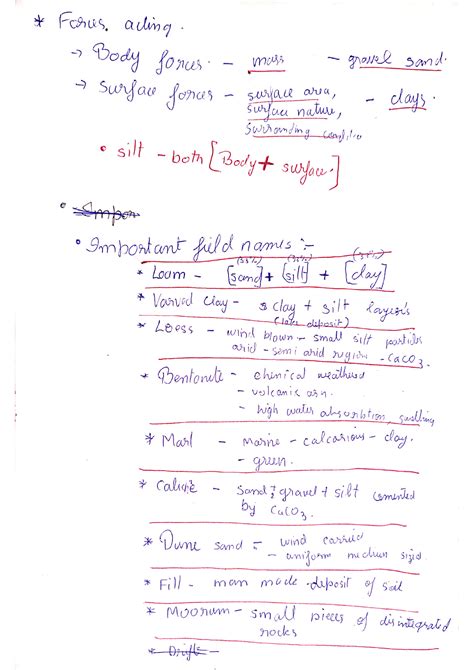 * Forces acting.
→ Body forces - mass - gravel sand.
→ Surface forces - surface area, surface nature, surrounding - clays.
• silt - both [Body + surface.]
• Impor
• Important field names :-
(33%) (33%) (33%)
* Loam - [sand] + [silt] + [clay]
* Varved clay - clay + silt layers
(lake deposit)
* Loess - wind blown - small silt particles
arid - semi arid region - CaCO3.
* Bentonite - chemical weathered
- volcanic ash.
- high water absorbtion, swelling
* Marl - marine - calcarious - clay.
- green.
* Caliche - sand, gravel + silt cemented
by CaCO3.
* Dune sand :- wind carried
- uniform medium sized.
* Fill - man made deposit of soil
* Moorum - small pieces of disintegrated
rocks
* Drift -